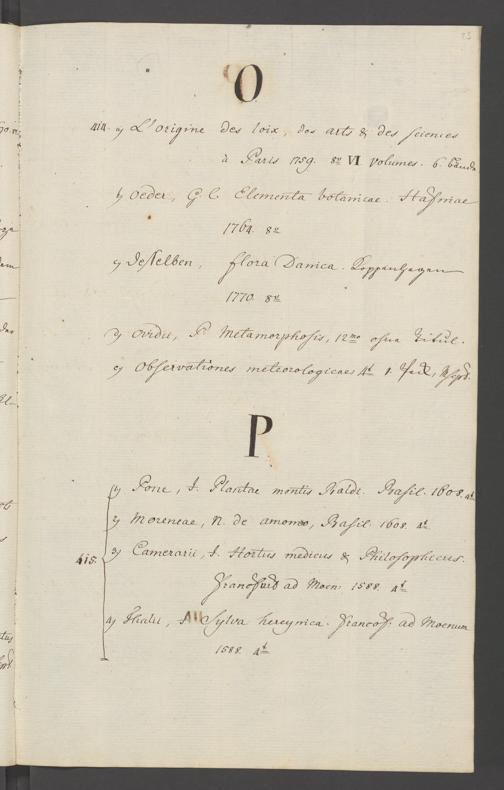 O
414. a) L'origine des loix, des arts & des sciences
à Paris 1759. 8vo VI volumes. 6. bände
b) Oeder, G. C. Elementa botanicae. Hafniae
1764. 8vo
c) Desselben, flora Danica. Koppenhagen
1770. 8vo
d) Ovidii, P. Metamorphosis, 12mo ohne Titul.
e) Observationes meteorologicae 4t 1.
P
415.
1) Pone, I. Plantae montis Baldi. Basil. 1608. 4t
2) Moreneae, N. de amomo, Basil. 1608. 4t
3) Camerarii, I. Hortus medicus & Philosophicus.
Francfurt ad Moen. 1588. 4t
4) Thalii, I. Sylva hercynica. Francof. ad Moenum
1588. 4t